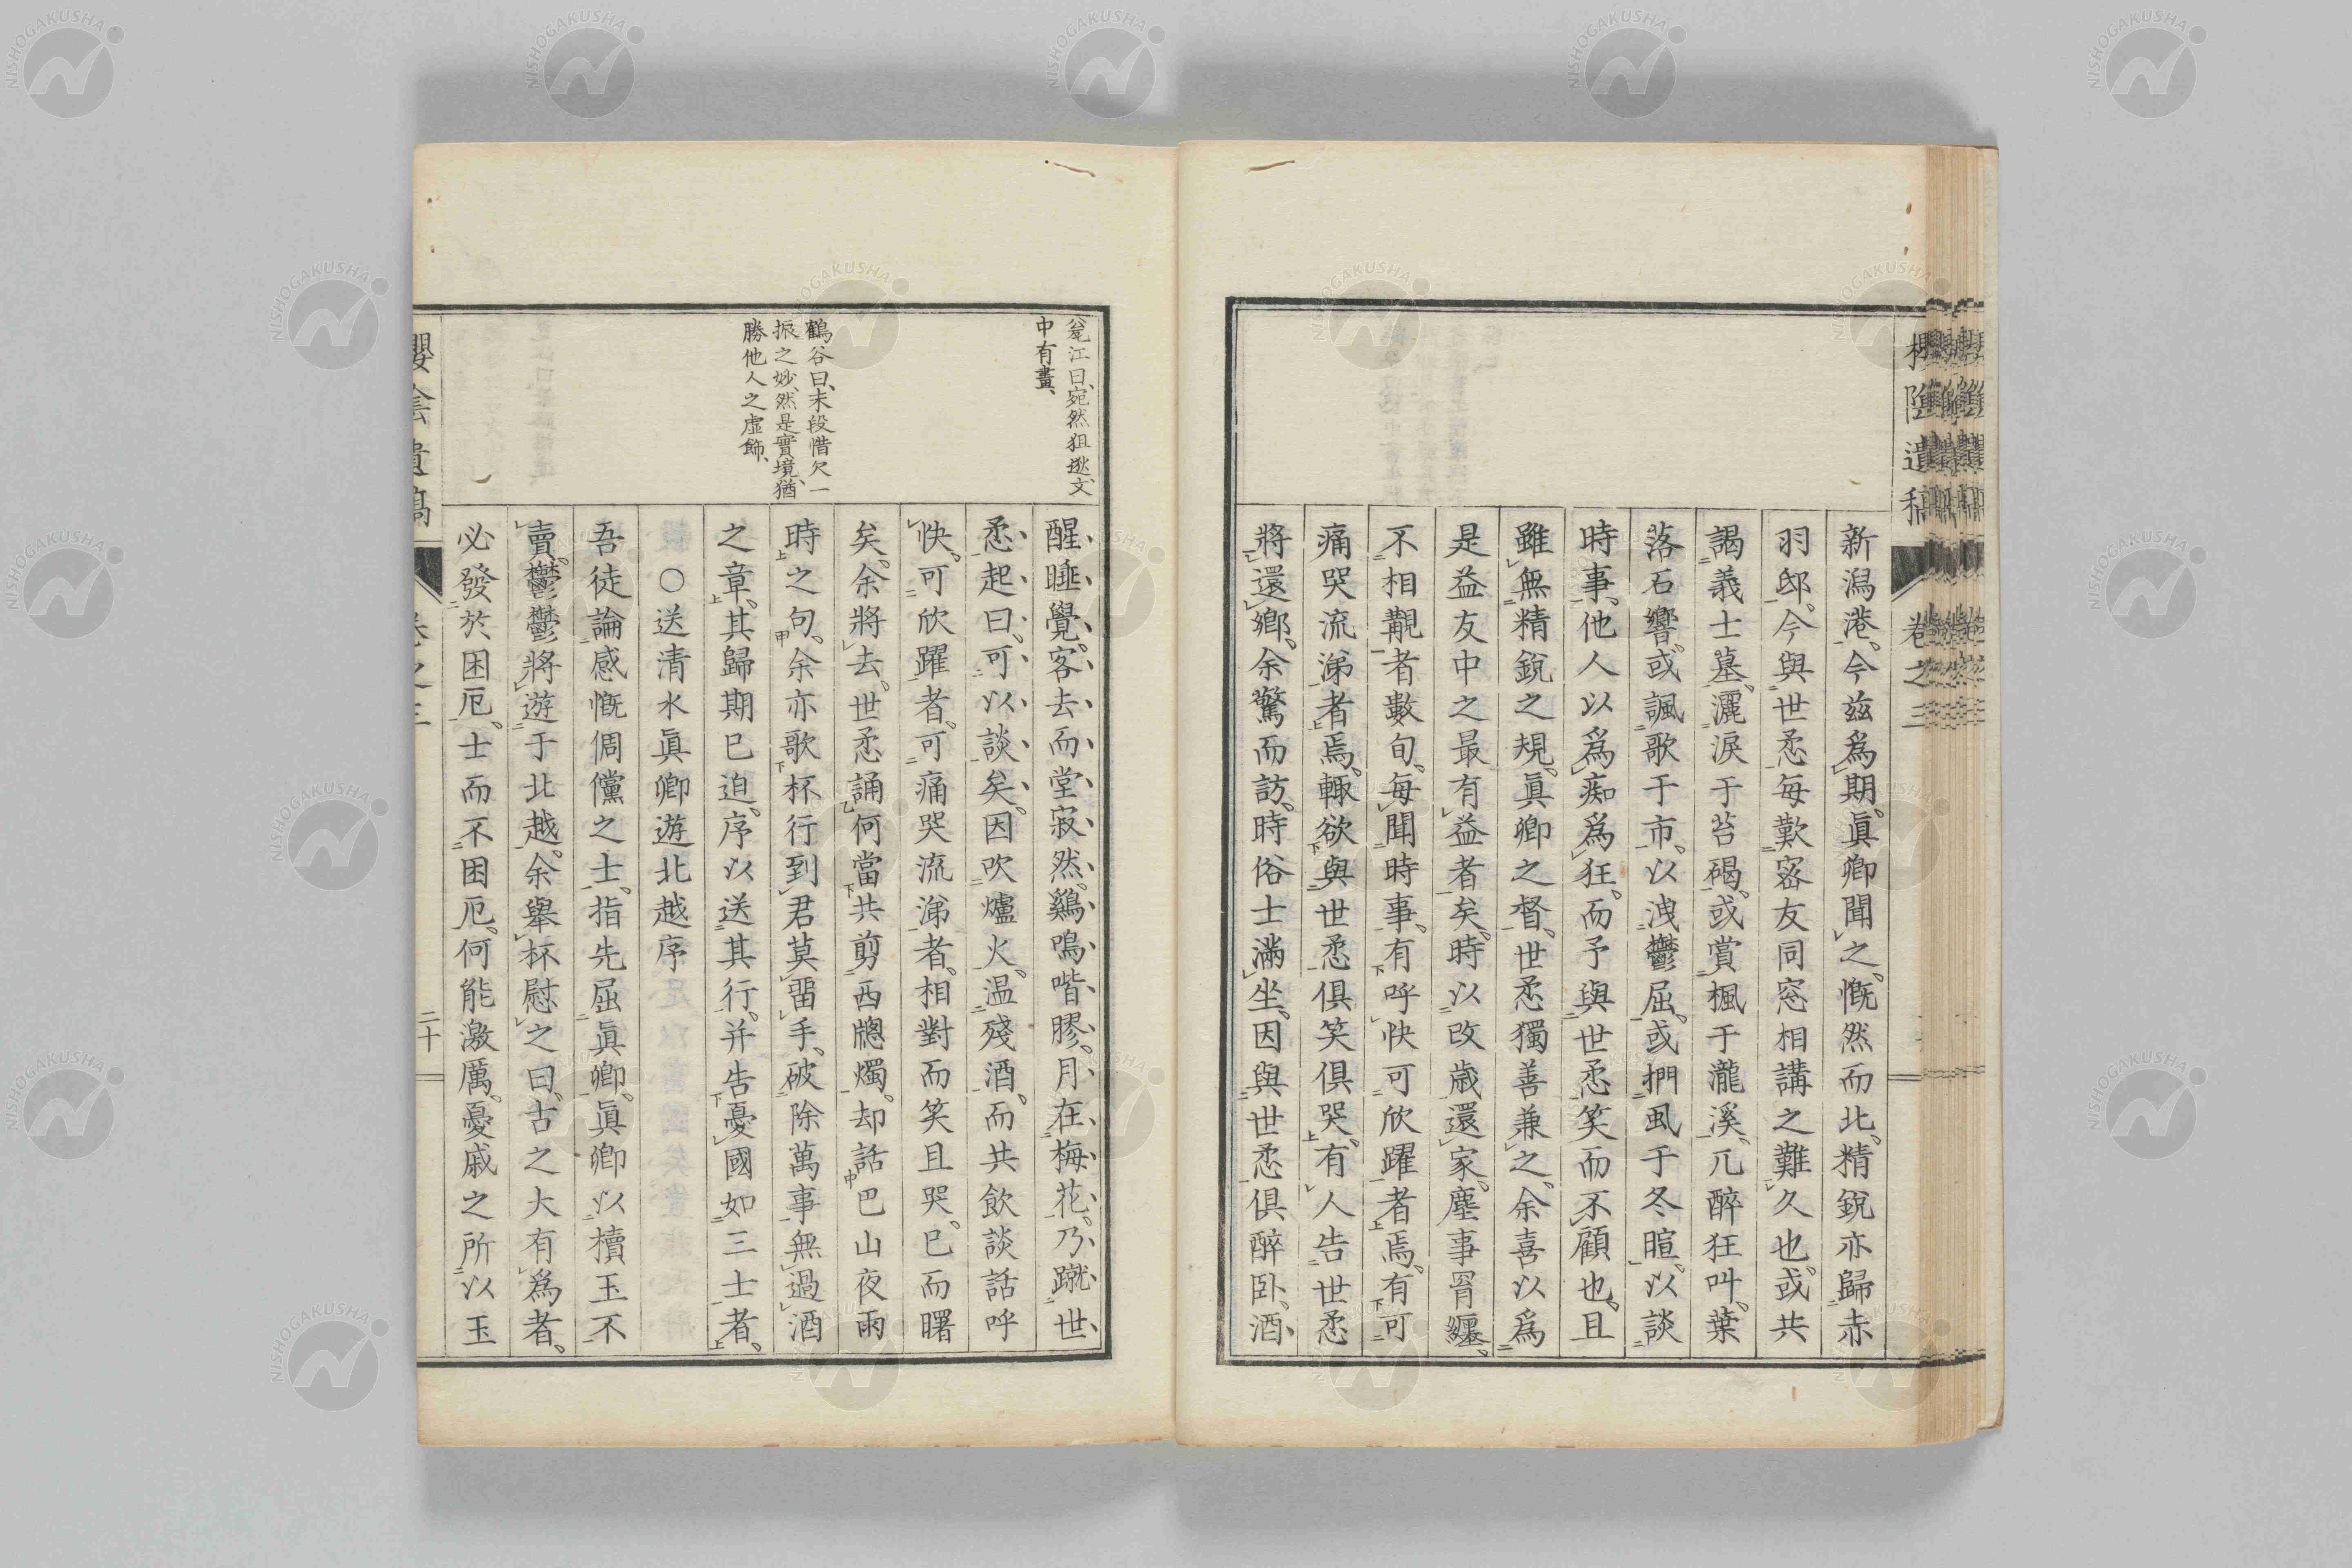 櫻陰遺稿
卷之三
新潟港、今茲爲期。眞卿聞之。慨然而北。精銳亦歸赤
羽邸。今與世柔每歎密友同窓相講之難久也。或共
謁義士墓。灑淚于苔碣。或賞楓于瀧溪。兀醉狂叫。葉
落石響。或諷歌于市。以洩鬱屈。或捫虱于冬暄。以談
時事。他人以爲痴爲狂。而予與世柔笑而不顧也。且
雖無精銳之規。眞卿之督。世柔獨善兼之。余喜以爲
是益友中之最有益者矣。時以改歲還家。塵事胥纒。
不相覯者數旬。每聞時事。有呼快可欣躍者焉。有可
痛哭流涕者焉。輙欲與世柔俱笑俱哭。有人告世柔
將還鄉。余驚而訪。時俗士滿坐。因與世柔俱醉臥。酒
醒睡覺。客去而堂寂然。鷄鳴喈膠。月在梅花。乃蹴世
柔起曰。可以談矣。因吹爐火。温殘酒。而共飮談話呼
快。可欣躍者。可痛哭流涕者。相對而笑且哭。已而曙
矣。余將去。世柔誦何當共剪西牕燭。却話巴山夜雨
時之句。余亦歌杯行到君莫畱手。破除萬事無過酒
之章。其歸期已迫。序以送其行。并告憂國如三士者。
○送淸水眞卿遊北越序
吾徒論感慨倜儻之士。指先屈眞卿。眞卿以櫝玉不
賣。鬱鬱將遊于北越。余擧杯慰之曰。古之大有爲者。
必發於困厄。士而不困厄。何能激厲。憂戚之所以玉
翁江曰、宛然狙逖、文
中有畫、
鶴谷曰、末段惜欠一
振之妙、然是實境、猶
勝他人之虛飾、
櫻陰遺稿
卷之三
二十
NISHOGAKUSHA